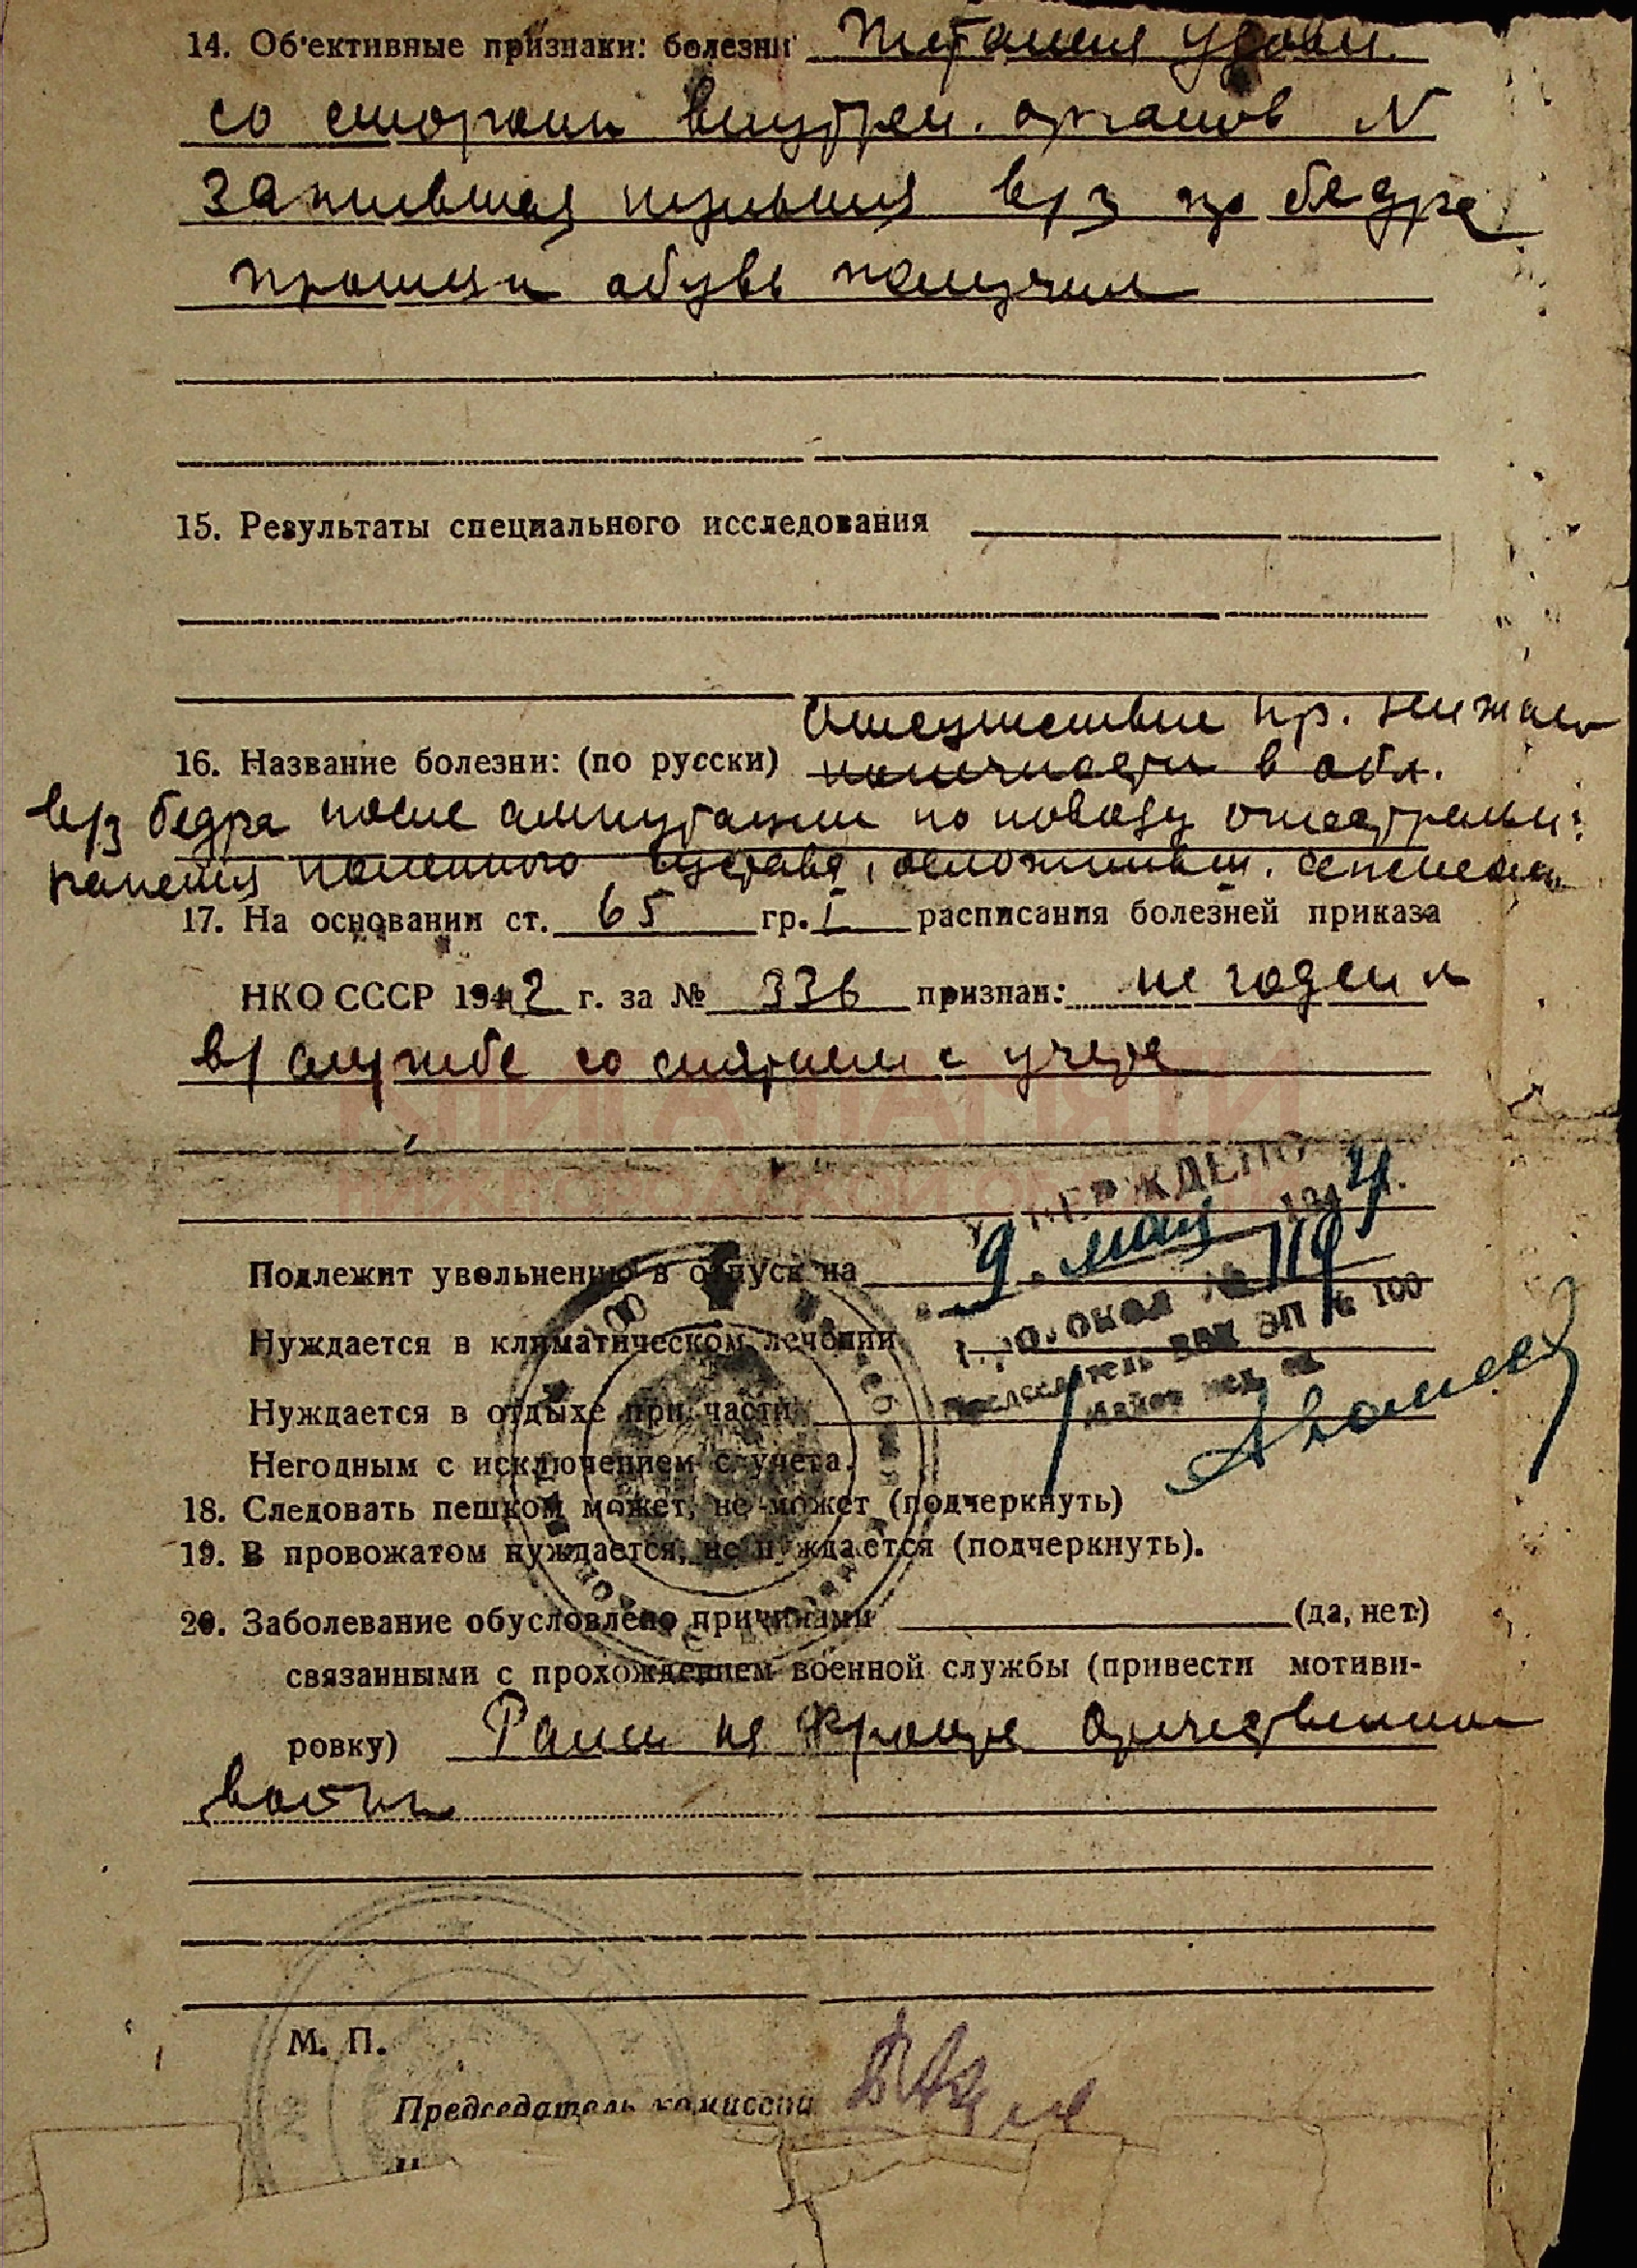 14. Об'ективные признаки: болезни Питания удовл.
со стороны внутрен. органов N
Зажившая культя в/з пр бедра
обувь получил
15. Результаты специального исследования
Отсутствие пр. нижней
16. Название болезни: (по русски) конечности в обл.
в/з бедра после ампутации по поводу огнестрельн.
ранения коленного сустава, осложнивш. сепсисом
17. На основании ст. 65 гр. I расписания болезней приказа
НКО СССР 1942 г. за № 336 признан: не годен к
в/службе со снятием с учета
КНИГА ПАМЯТИ
НИЖЕГОРОДСКОЙ ОБЛАСТИ
УТВЕРЖДЕНО
"9" мая 1944 г.
Подлежит увольнению в отпуск на
Протокол №
Нуждается в климатическом лечении
Председатель ВВК ЭП № 100
Майор мед. сл.
Нуждается в отдыхе при части
Негодным с исключением с учета.
18. Следовать пешком может, не может (подчеркнуть)
19. В провожатом нуждается, не нуждается (подчеркнуть).
20. Заболевание обусловлено причинами (да, нет)
связанными с прохождением военной службы (привести мотиви-
ровку) Ранен на фронте Отечественной
войны
М. П.
Председатель комиссии